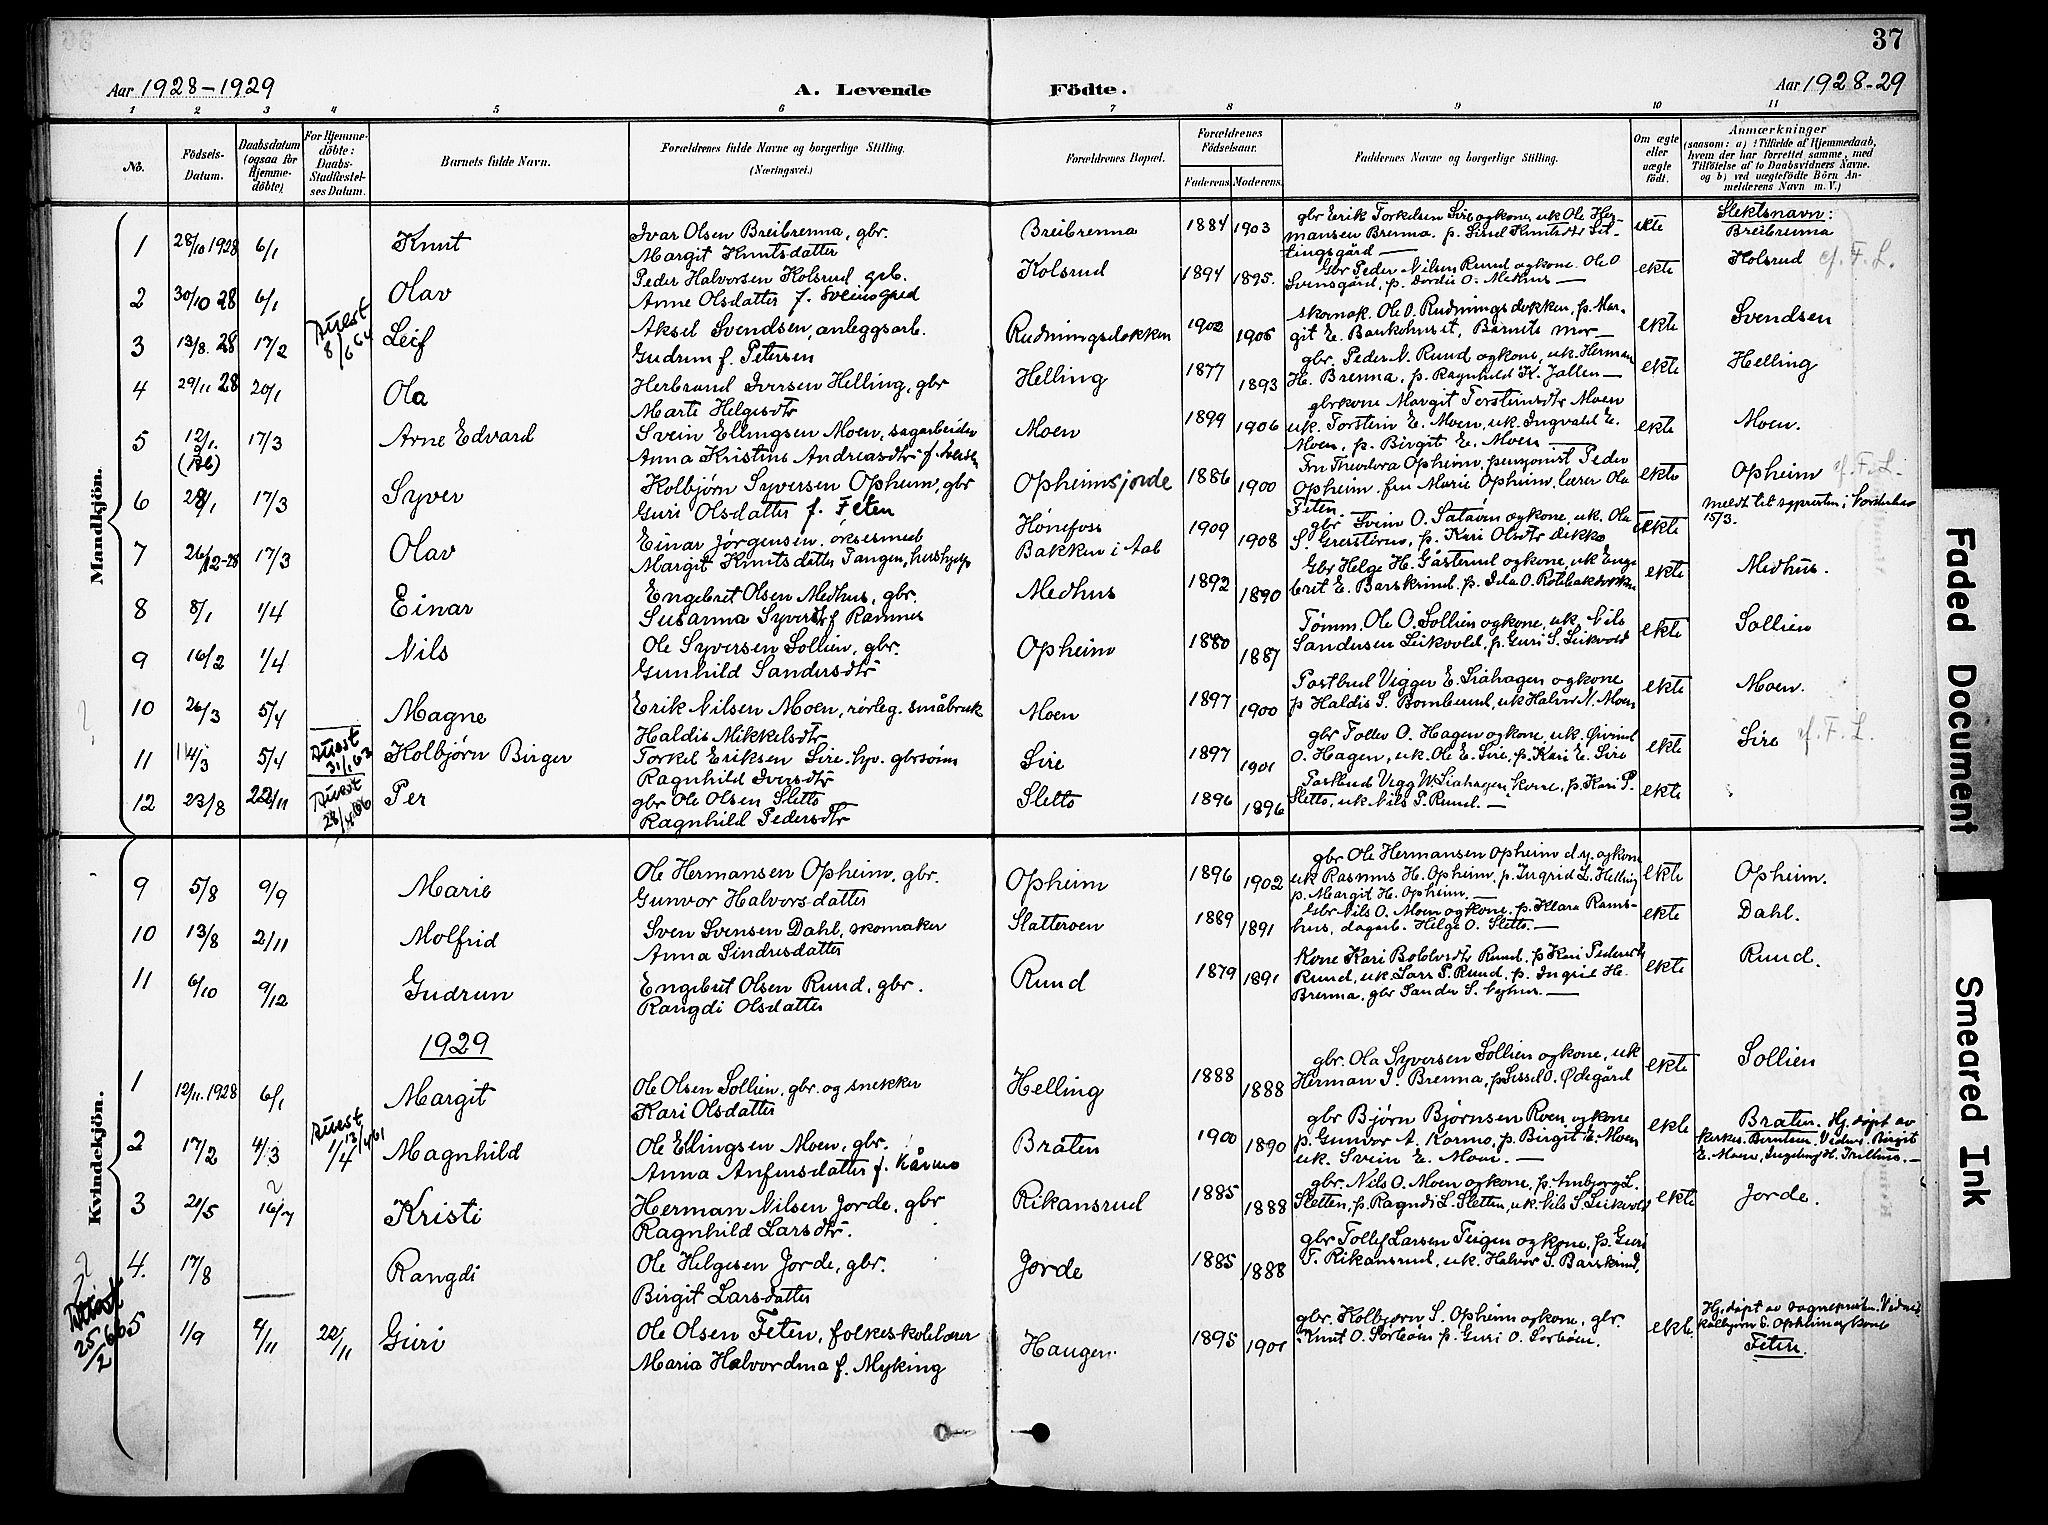 37
Aar 1928-1929
A. Levende
Födte.
Aar 1928-29
1 2 3 4 5 6 7 8 9 10 11
No.
Födsels-Datum.
Daabsdatum (ogsaa for Hjemme-döbte).
For Hjemme-döbte: Daabs-Stadfæstel-ses Datum.
Barnets fulde Navn.
Forældrenes fulde Navne og borgerlige Stilling.
(Næringsvei.)
Forældrenes Bopæl.
Forældrenes Födselsaar.
Faderens. Moderens.
Faddernes Navne og borgerlige Stilling.
Om ægte eller uægte födt.
Anmærkninger
(saasom: a) i Tilfælde af Hjemmedaab, hvem der har forrettet samme, med Tilföielse af to Daabsvidners Navne. og b) ved uægtefödte Börn An-melderens Navn m. V.)
Mandkjön.
1 28/10 1928 6/1 Knut
Ivar Olsen Breibrenna, gbr.
Margit Knutsdatter
Breibrenna 1884 1903
gbr Erik Torkelsen Sire og kone, uk Ole Her-
mansen Brenna, p. Sissel Knutsdtr
ekte
Slektsnavn:
Breibrenna
2 30/10 28 6/1 Olav
Peder Halvorsen Kolsrud gbr.
Anne Olsdatter f. Sveinsgard
Kolsrud 1894 1895.
Gbr Peder Nilsen Ruud og kone. Ole O
Svensgård, p. Dordei O. Medhus
ekte
Kolsrud cf. F. L.
3 13/8. 28 17/2 Attest 8/6 64 Leif
Aksel Svendsen, anleggsarb.
Gudrun f. Petersen
Rudningsdokken 1902 1905
skomak. Ole O. Rudningsdokken, p. Mar-
git E. Barnets mor
ekte
Svendsen
4 29/11 28 20/1 Ola
Herbrand Iversen Helling, gbr
Marte Helgesdtr
Helling 1877 1893
gbr. Peder N. Ruud og kone, uk. Herman
H. Brenna, p. Ragnhild K. Jallen
ekte
Helling
5 12/1. 17/3 Arne Edvard
Svein Ellingsen Moen, sagarbeider
Anna Kristine Andreasdtr f. Iversen
Moen 1899 1906
gbrkone Margit Torsteinsdtr Moen
uk. Torstein E. Moen, uk. Ingvald E.
Moen, p. Birgit E. Moen
ekte
Moen.
6 17/3 Syver
Kolbjørn Syversen Opheim, gbr
Guri Olsdatter f. Feten
Opheimsjorde 1886 1900
Fru Theodora Opheim, pensjonist Peder
Opheim, fru Marie Opheim, lærer Ola
Feten.
ekte
Opheim cf. F. L.
7 26/12-28 17/3 Olav
Einar Jørgensen.
Margit Knutsdatter Tangen, hushjelp
Hønefoss
Bakken i Aal
1909 1908
gbr Svein O. Sataøen og kone, uk. Ola
S. p. Kari Olsdtr Dekko
ekte
meldt til sognepresten i
15/3.
8 8/1 1/4 Einar
Engebret Olsen Medhus, gbr.
Susanna Syversdtr f Ramnes
Medhus 1892 1890
Gbr Helge H. Gåsterud og kone, uk Enge-
bret E. Barskrind, p. Ida O.
ekte
Medhus.
9 16/2 1/4 Nils
Ole Syversen Sollien, gbr.
Gunhild Sandersdtr
Opheim 1880 1887
Tømm. Ole O. Sollien og kone, uk. Nils
Sandersen Leikvold, p. Guri S. Leikvold
ekte
Sollien
10 26/3 5/4 Magne
Erik Nilsen Moen, rørleg. småbruk
Haldis Mikkelsdtr
Moen 1897 1900
Postbud Vigger E. Liahagen og kone
p Haldis S. Bomberud, uk Halvor N. Moen
ekte
Moen.
11 14/3 5/4 Attest 31/1 63 Kolbjørn Birger
Torkel Eriksen Sire. hjv. gbrsønn
Ragnhild Iversdtr
Sire 1897 1901
gbr Tollev O. Hagen og kone, uk. Øivind
O. Hagen, uk. Ole E. Sire, p. Kari E. Sire
ekte
Sire cf. F. L.
12 23/8 22/11 Attest Per
gbr Ole Olsen Sletto
Ragnhild Pedersdtr
Sletto 1896 1896
Postbud Vigg W. Liahagen, kone, p. Kari P.
Sletto, uk Nils P. Ruud.
ekte
Kvindekjön.
9 5/8 9/9 Marie
Ole Hermansen Opheim, gbr.
Gunvor Halvorsdatter
Opheim 1896 1902
gbr Ole Hermansen Opheim d.y. og kone
uk Rasmus H. Opheim, p. Ingrid L. Helling
p. Margit H. Opheim.
ekte
Opheim.
10 13/8 2/11 Molfrid
Sven Svensen Dahl, skomaker
Anna Sindresdatter
Slatteroen 1889 1891
Gbr Nils O. Moen og kone, p. Klara Rams-
hus, dagarb. Helge O. Sletto.
ekte
Dahl.
11 6/10 9/12 Gudrun
Engebret Olsen Ruud, gbr.
Rangdi Olsdatter
Ruud 1879 1891
kone Kari Ruud, p Kari Pedersdtr
Ruud, uk. Lars P. Ruud, p. Ingrid He.
Brenna, gbr Sander S. Nyhus.
ekte
Ruud.
1929
1 12/11. 1928 6/1 Margit
Ole Olsen Sollien, gbr. og snekker
Kari Olsdatter
Helling 1888 1888
gbr. Ola Syversen Sollien og kone, uk
Herman I. Brenna, p Sissel O. Ødegård
ekte
Sollien
2 17/2 4/3 Attest Magnhild
Ole Ellingsen Moen, gbr.
Anna Anfinsdatter f. Kårmo
Bråten 1900 1890
gbr Bjørn Bjørnsen Roen og kone
p. Gunvor A. Kormo, p. Birgit E. Moen
uk. Svein E. Moen.
ekte
Bråten. Hj. døpt av
Vidner: Birgit
E. Moen, Ingebjrg H. Trillhus.
3 21/5 16/7 Kristi
Herman Nilsen Jorde, gbr
Ragnhild Larsdtr.
Rikansrud 1885 1888
gbr. Nils O. Moen og kone, p. Ambjørg L.
Sletten, p. Ragndi L. Sletten, uk. Nils S. Leikvold
ekte
Jorde.
4. 17/8 — Rangdi
Ole Helgesen Jorde, gbr.
Birgit Larsdatter
Jorde 1885 1888
gbr Tollef Larsen Teigen og kone, p. Guri
T. Rikansrud, uk. Halvor S. Barskrind,
Attest 25/2 66
5 1/9 4/11 22/11 Guri
Ole Olsen Feten, folkeskolelærer
Maria Halvordina f. Myking
Haugen 1895 1901
gbr. Kolbjørn S. Opheim og kone, gbr.
Knut O. Sorbøen p. Guri O. Sorbøen.
ekte
Hj. døpt av sogneprsten. Vidner
Kolbjørn S. Opheim og kone
Feten.
Faded Document
Smeared Ink